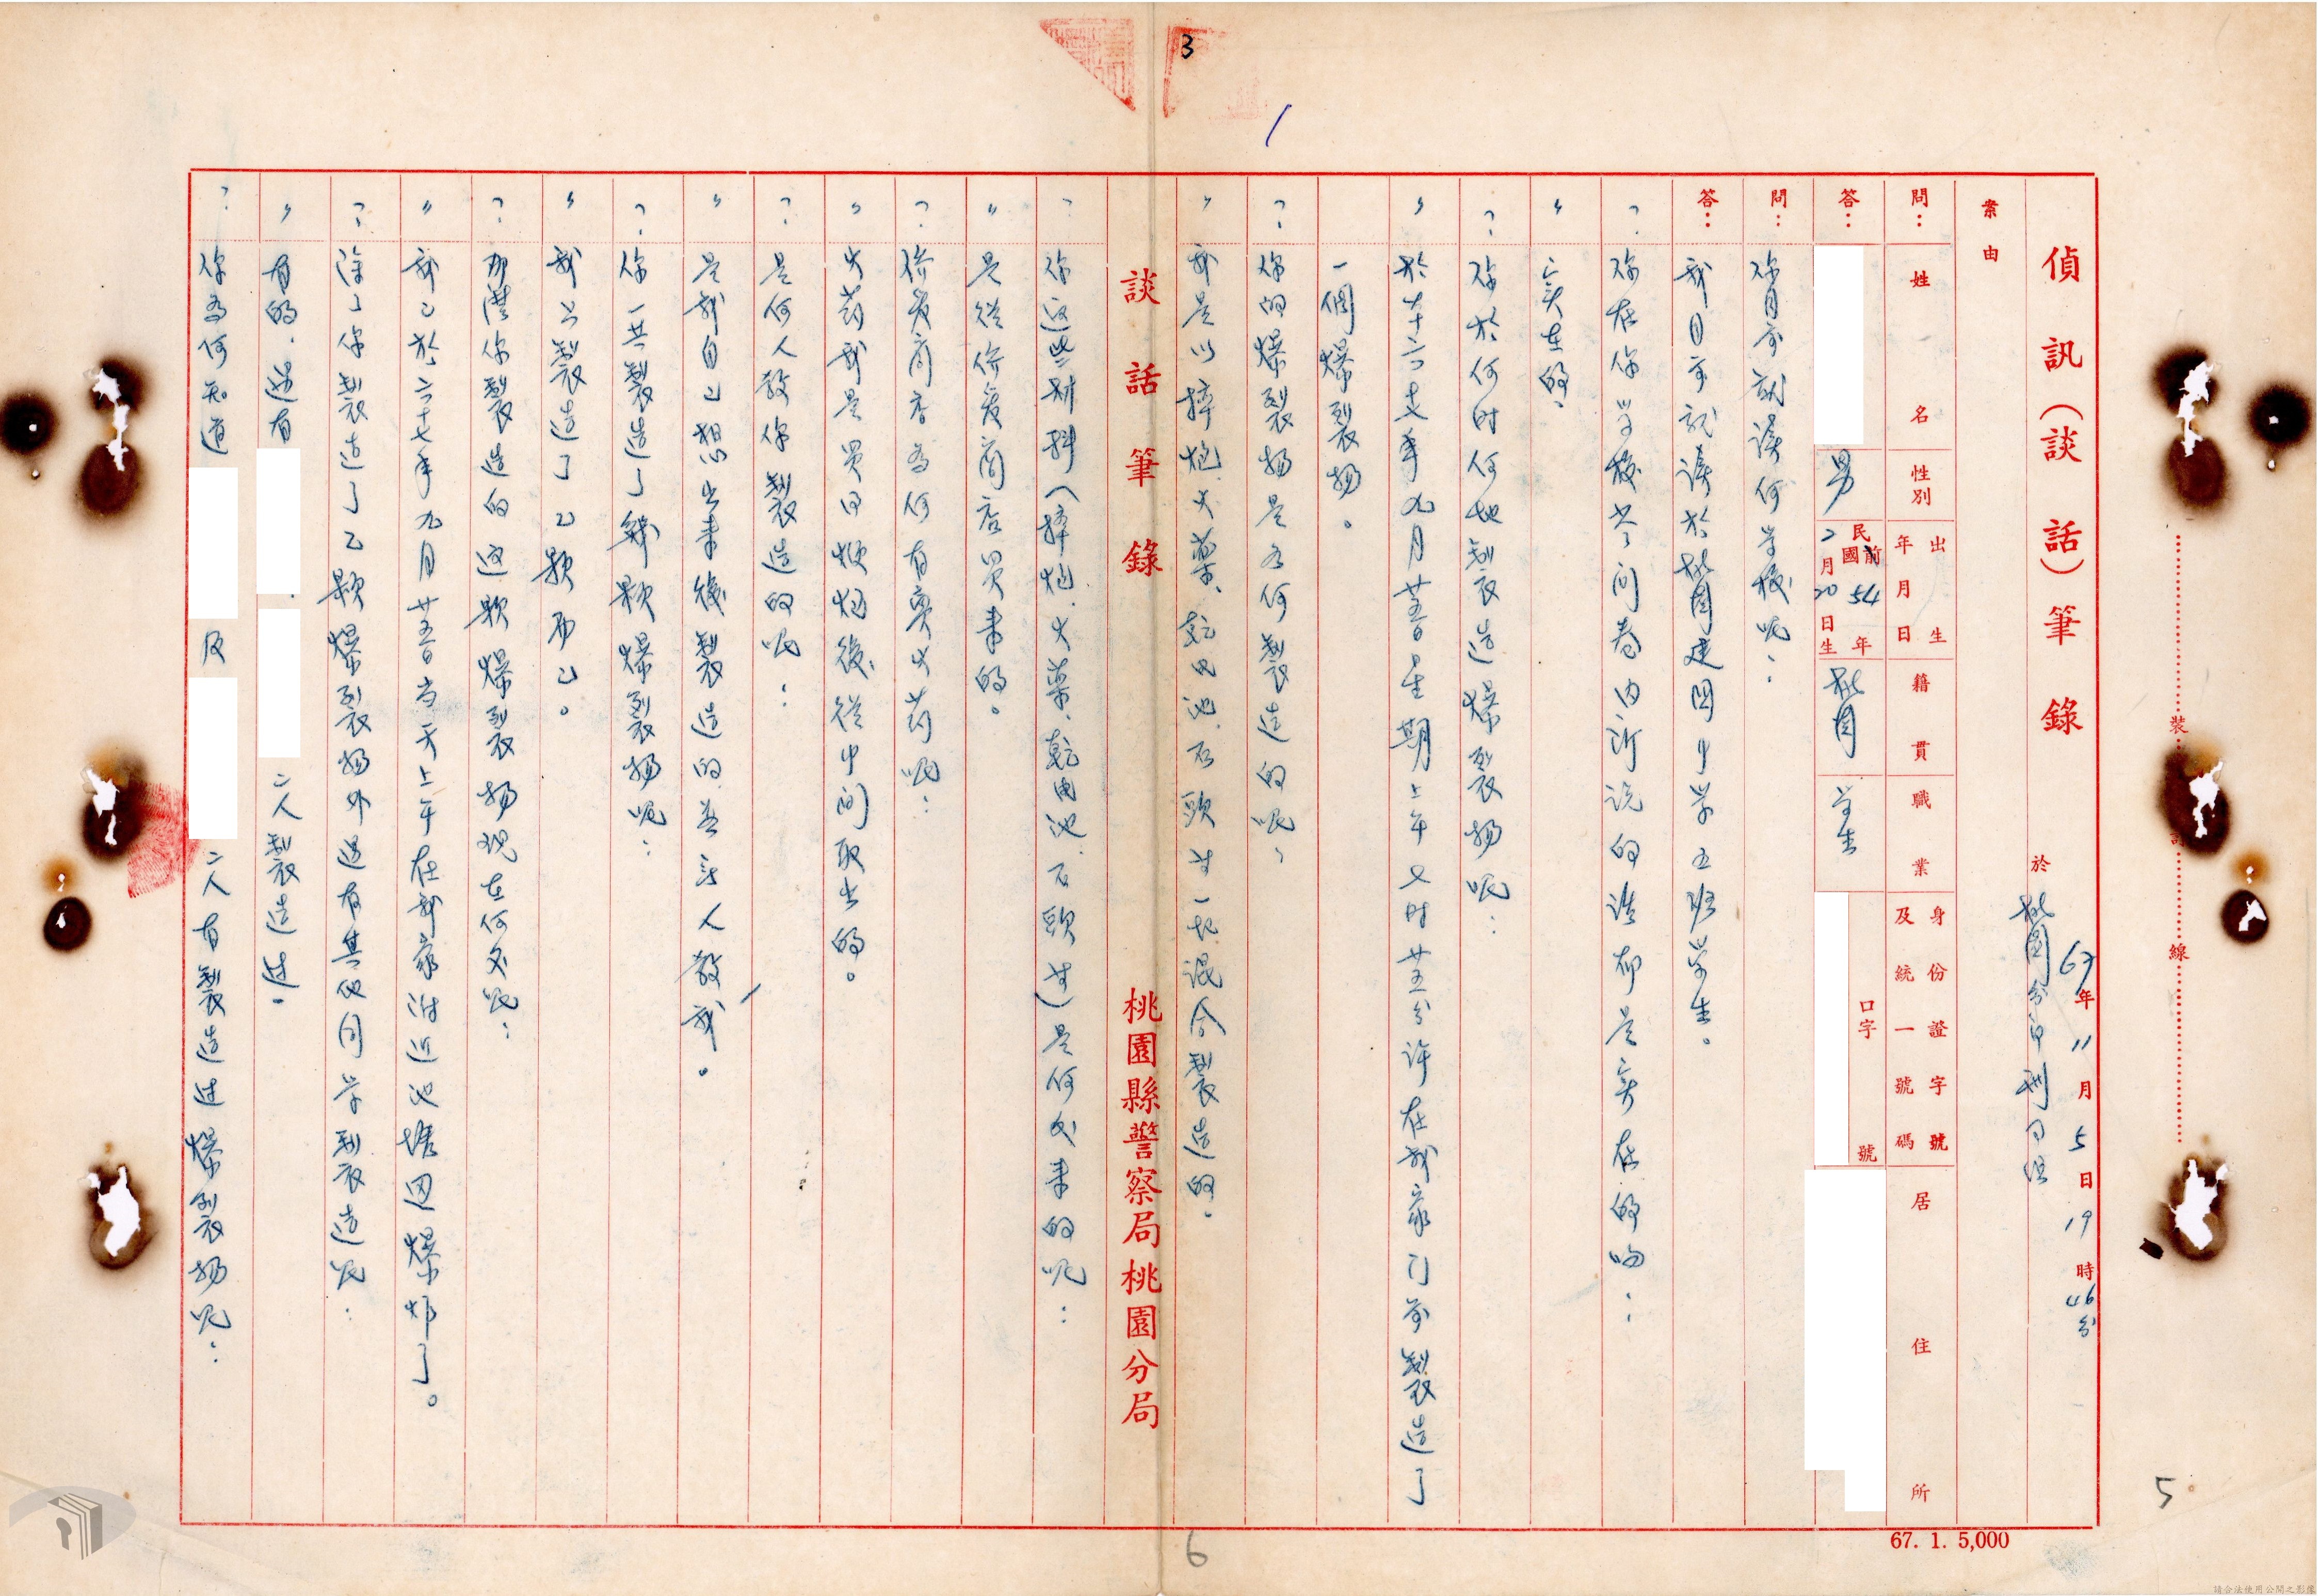 3
偵訊（談話）筆錄
67年11月5日19時46分
於桃園分局刑事組
案由
問：姓名 性別 出生年月日 籍貫 職業 身份證字號及統一號碼 居住所
答：男 民國前54年2月20日生 桃園 學生 口字 號
問：你目前就讀何学校呢：
答：我目前就讀於桃園建国中学五班学生。
？你在你学校中问卷内所说的话都是实在的吗：
〃实在的。
？：你於何时何地製造爆裂物呢：
〃於六十七年九月廿五日星期上午七时廿五分许在我家门前製造了
一個爆裂物。
？：你的爆裂物是如何製造的呢：
〃我是以摔炮、火藥、乾电池、石頭 一起混合製造的。
談話筆錄
桃園縣警察局桃園分局
？你這些材料（摔炮、火藥、乾电池、石頭 ）是何处来的呢：
〃是從 商店買来的。
？： 商店為何有賣火药呢：
〃火药我是買回 炮後從中间取出的。
？：是何人教你製造的呢：
〃是我自己想出来後製造的並無人教我。
？：你一共製造了幾顆爆裂物呢：
〃我只製造了乙顆而已。
？：那麼你製造的这顆爆裂物现在何处呢：
〃我已於六十七年九月廿五日当天上午在我家附近池塘边爆炸了。
？：除了你製造了乙顆爆裂物外還有其他同学製造呢：
〃有的，還有 二人製造过。
？：你為何知道 及 二人有製造过爆裂物呢：
裝訂線
5
6
67. 1. 5,000